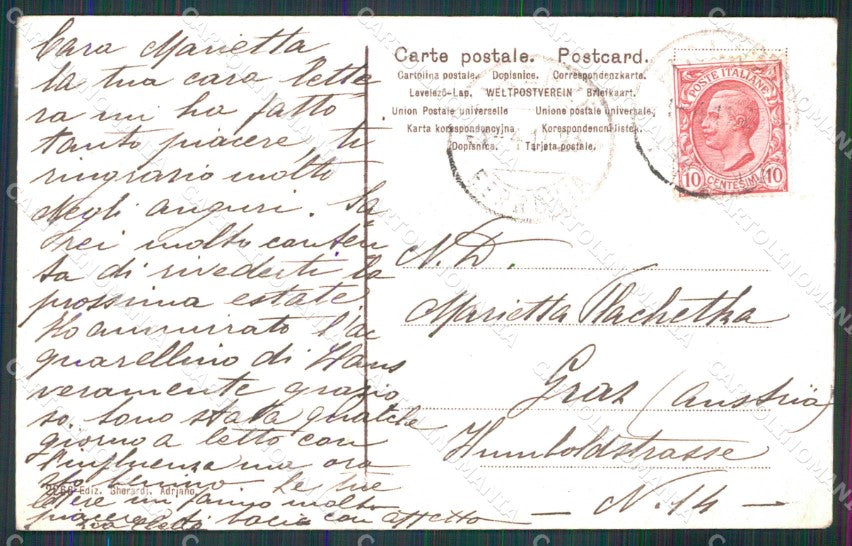 Cara Marietta
la tua cara lette
ra mi ha fatto
tanto piacere, ti
ringrazio molto
degli auguri. Sa
rei molto conten
ta di rivederti la
prossima estate.
Ho ammirato l'ac
quarellino di Hans
veramente grazio
so. Sono stata qualche
giorno a letto con
l'influenza ma ora
sto benino. Le tue
lettere mi fanno molto
piacere, ti bacia con affetto
tua
2266 Ediz. Gherardi. Adriano
Carte postale. Postcard.
Cartolina postale. Dopisnice. Correspondenzkarte.
Levelező-Lap. WELTPOSTVEREIN Briefkaart.
Union Postale universelle Unione postale universale.
Karta korespondencyjna Korespondencni listek.
Dopisnica. Tarjeta postale.
POSTE ITALIANE
10 CENTESIMI 10
N. D.
Marietta Plachetka
Graz (Austria)
Humboldstrasse
- N. 14 -
CARTOLINOMANIA